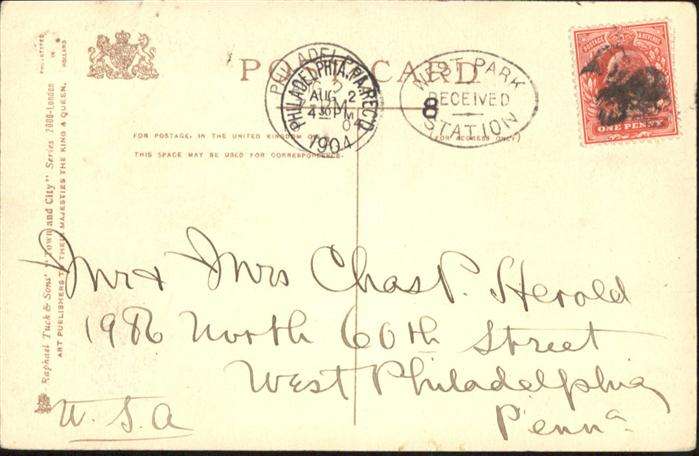 POST CARD
PHILADELPHIA, PA. REC'D
AUG 2
4 30 PM
1904
WEST PARK
RECEIVED
STATION
8
ONE PENNY
FOR POSTAGE, IN THE UNITED KINGDOM ONLY
THIS SPACE MAY BE USED FOR CORRESPONDENCE.
(FOR ADDRESS ONLY)
Raphael Tuck & Sons' "Town and City" Series 2000-London
ART PUBLISHERS TO THEIR MAJESTIES THE KING & QUEEN.
HOLLAND
Mr & Mrs Chas P. Herold
1986 North 60th Street
West Philadelphia
Penna
U.S.A